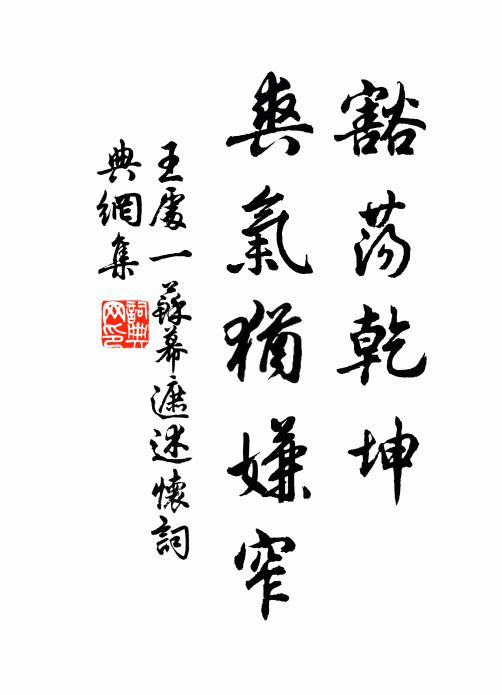 豁蕩乾坤
爽氣猶嫌窄
王處一蘇幕遮述懷詞
典網集
詞典網印